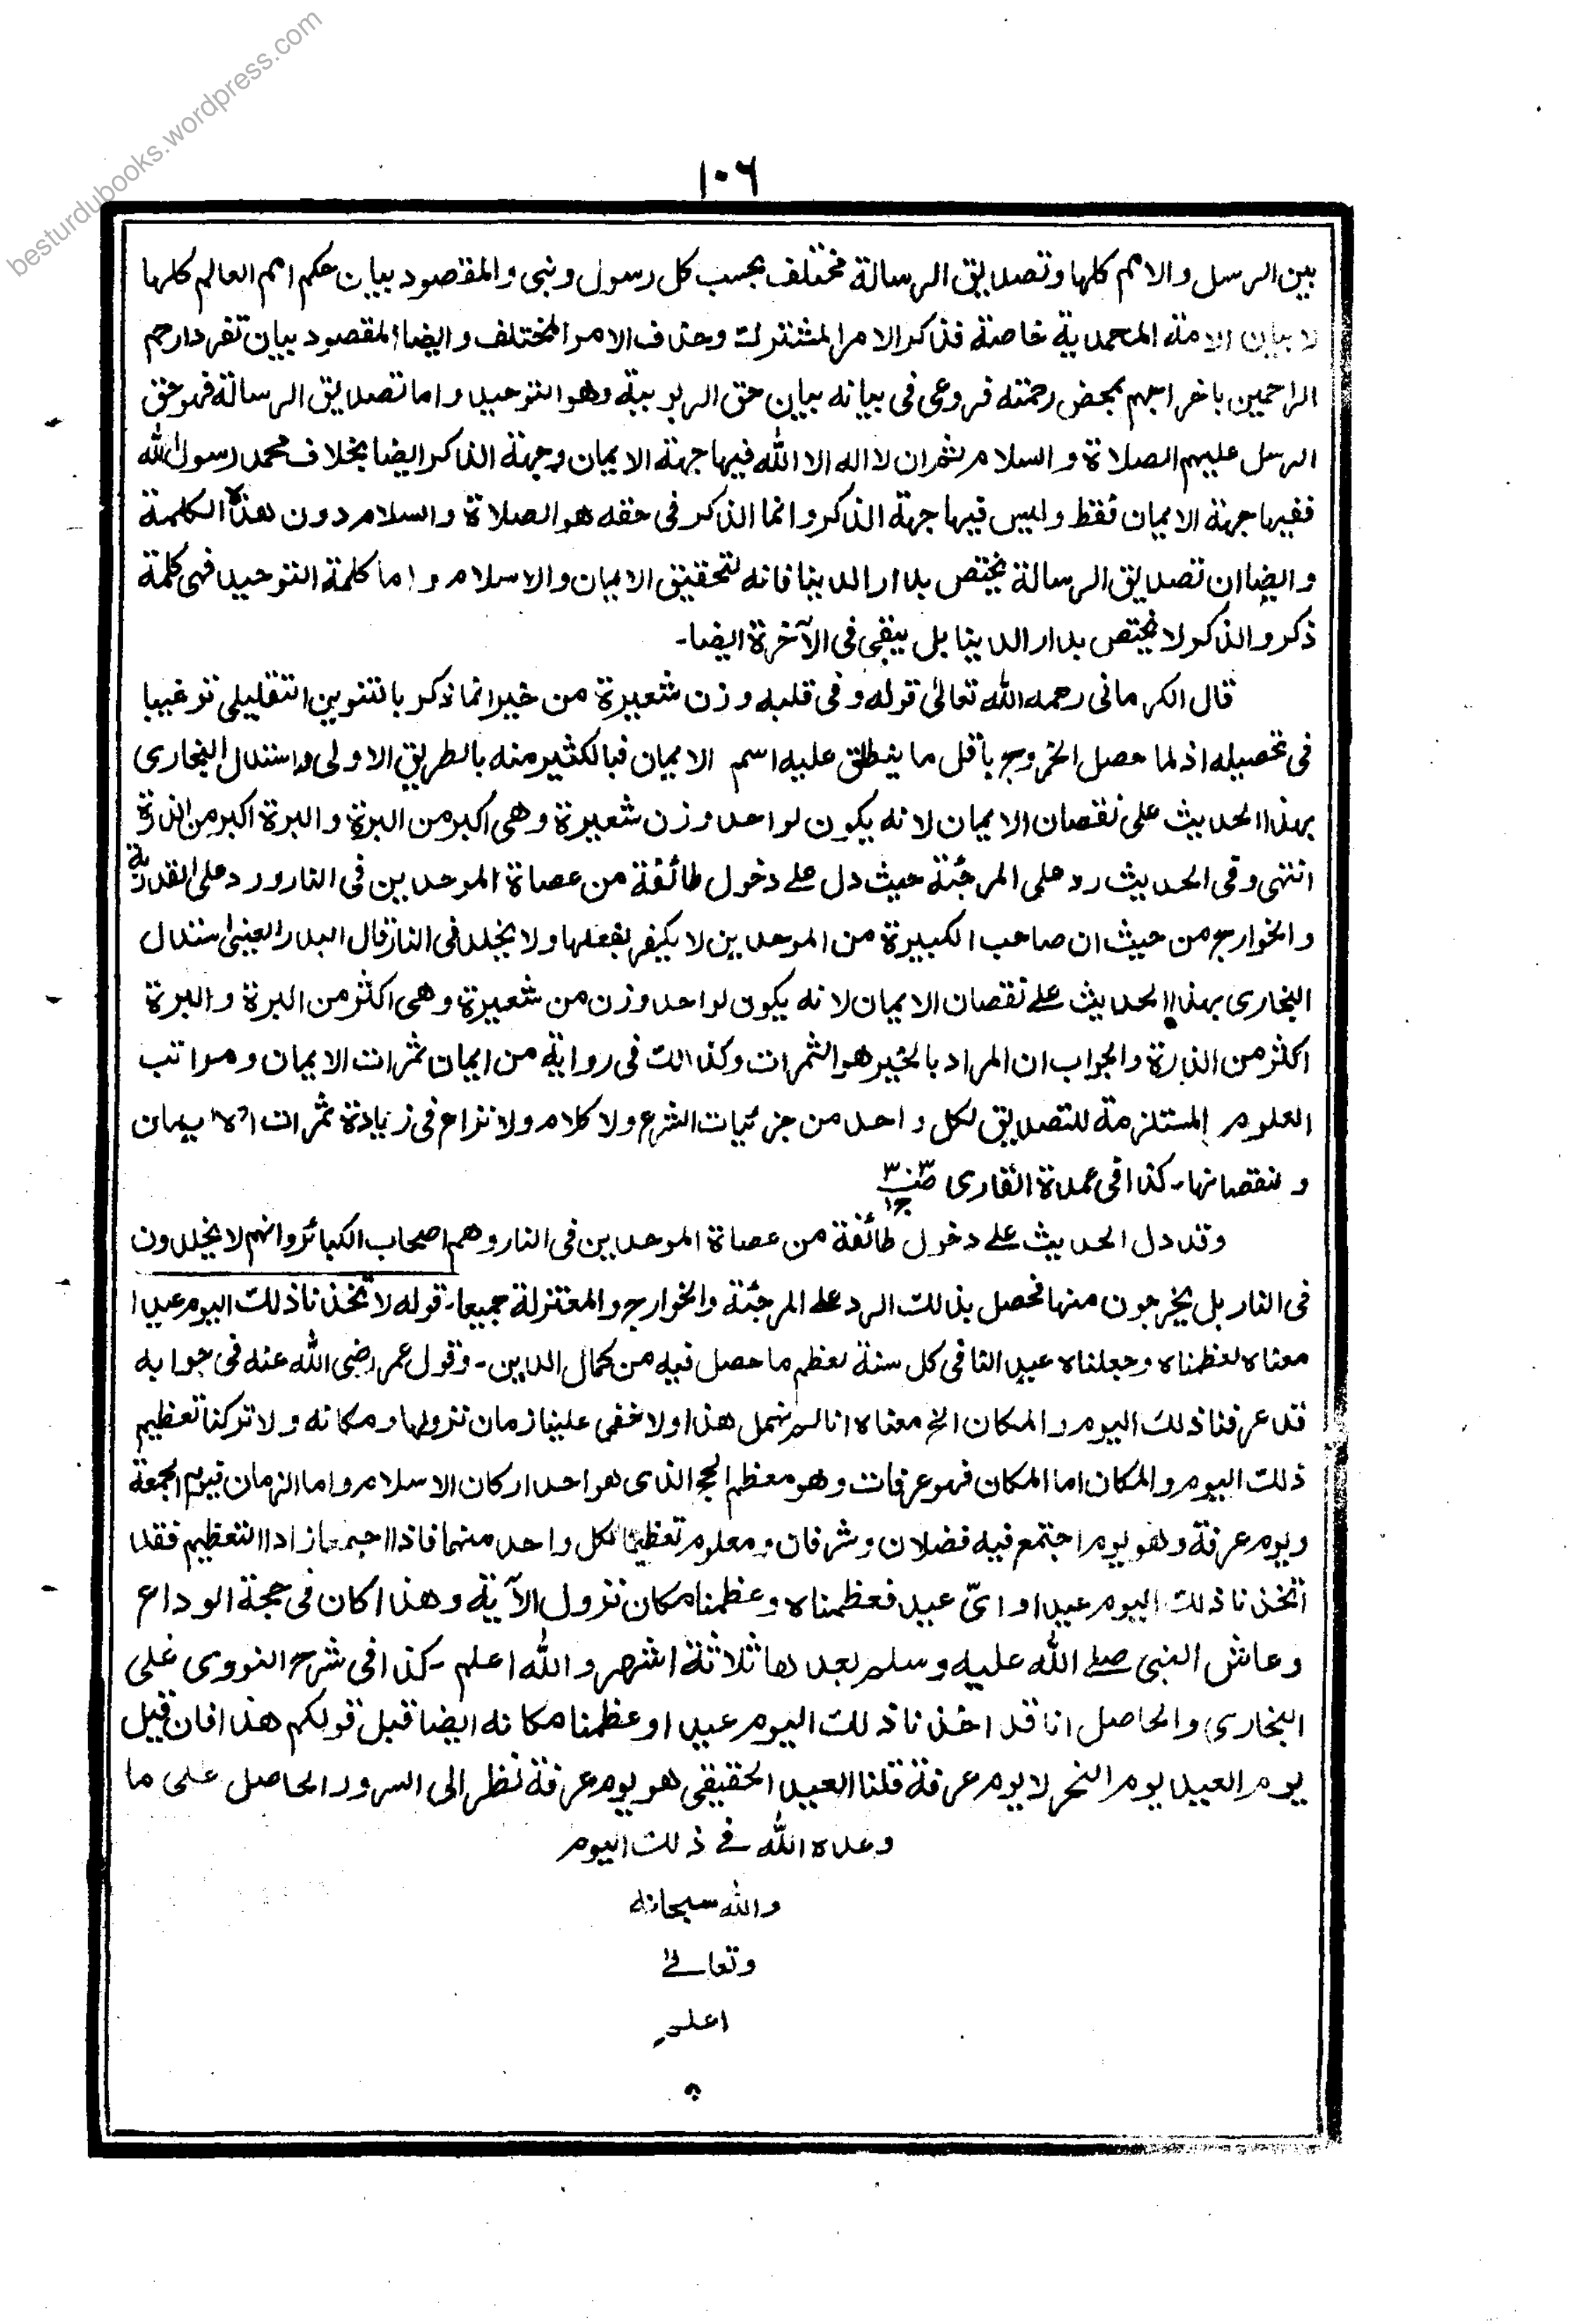 besturdubooks.wordpress.com
١٠٦
بين الرسل والامم كلها وتصديق الرسالة مختلف بحسب كل رسول ونبى والمقصود بيان حكم امم العالم كلها
لا بيان الامة المحمدية خاصة فذكر الامر المشترك وحذف الامر المختلف وايضا المقصود بيان تفرد ارحم
الراحمين باخراجهم بمحض رحمته فروعى فى بيانه بيان حق الربوبية وهو التوحيد واما تصديق الرسالة فهو حق
الرسل عليهم الصلاة والسلام ثم ان لا اله الا الله فيها جهة الايمان وجهة الذكر ايضا بخلاف محمد رسول الله
ففيها جهة الايمان فقط وليس فيها جهة الذكر وانما الذكر فى حقه هو الصلاة والسلام دون هذه الكلمة
وايضا ان تصديق الرسالة يختص بدار الدنيا فانه لتحقيق الايمان والاسلام واما كلمة التوحيد فهى كلمة
ذكر والذكر لا يختص بدار الدنيا بل يبقى فى الآخرة ايضا۔
قال الكرمانى رحمه الله تعالىٰ قوله وفى قلبه وزن شعيرة من خير انما ذكر بالتنوين التقليلى ترغيبا
فى تحصيله اذ لما حصل الخروج باقل ما ينطلق عليه اسم الايمان فبالكثير منه بالطريق الاولى واستدل البخارى
بهذا الحديث على نقصان الايمان لانه يكون لواحد وزن شعيرة وهى اكبر من البرة والبرة اكبر من الذرة
انتهى وفى الحديث رد على المرجئة حيث دل علے دخول طائفة من عصاة الموحدين فى النار ورد على القدرية
والخوارج من حيث ان صاحب الكبيرة من الموحدين لا يكفر بفعلها ولا يخلد فى النار قال البدر العينى استدل
البخارى بهذا الحديث علے نقصان الايمان لانه يكون لواحد وزن من شعيرة وهى اكثر من البرة والبرة
اكثر من الذرة والجواب ان المراد بالخير هو الثمرات وكذالك فى رواية من ايمان ثمرات الايمان ومراتب
العلوم المستلزمة للتصديق لكل واحد من جزئيات الشرع ولا كلام ولا نزاع فى زيادة ثمرات الايمان
ونقصانها۔ كذا فى عمدة القارى
وقد دل الحديث علے دخول طائفة من عصاة الموحدين فى النار وهم اصحاب الكبائر وانهم لا يخلدون
فى النار بل يخرجون منها فحصل بذلك الرد علے المرجئة والخوارج والمعتزلة جميعا۔ قوله لاتخذنا ذلك اليوم عيدا
معناه لعظمناه وجعلناه عيدا لنا فى كل سنة لعظم ما حصل فيه من كمال الدين۔ وقول عمر رضى الله عنه فى جوابه
قد عرفنا ذلك اليوم والمكان الخ معناه انا لم نهمل هذا ولا خفى علينا زمان نزولها ومكانه ولا تركنا تعظيم
ذلك اليوم والمكان اما المكان فهو عرفات وهو معظم الحج الذى هو احد اركان الاسلام واما الزمان فيوم الجمعة
ويوم عرفة وهو يوم اجتمع فيه فضلان وشرفان ومعلوم تعظيمنا لكل واحد منهما فاذا اجتمعا زاد التعظيم فقد
اتخذنا ذلك اليوم عيدا واىّ عيد فعظمناه وعظمنا مكان نزول الآية وهذا كان فى حجة الوداع
وعاش النبى صلے الله عليه وسلم بعدها ثلاثة اشهر والله اعلم۔ كذا فى شرح النووى على
البخارى والحاصل انا قد اخذنا ذلك اليوم عيدا وعظمنا مكانه ايضا قبل قولكم هذا فان قيل
يوم العيد يوم النحر لا يوم عرفة قلنا العيد الحقيقى هو يوم عرفة نظر الى السرور الحاصل على ما
وعده الله فے ذلك اليوم
والله سبحانه
وتعالے
اعلم